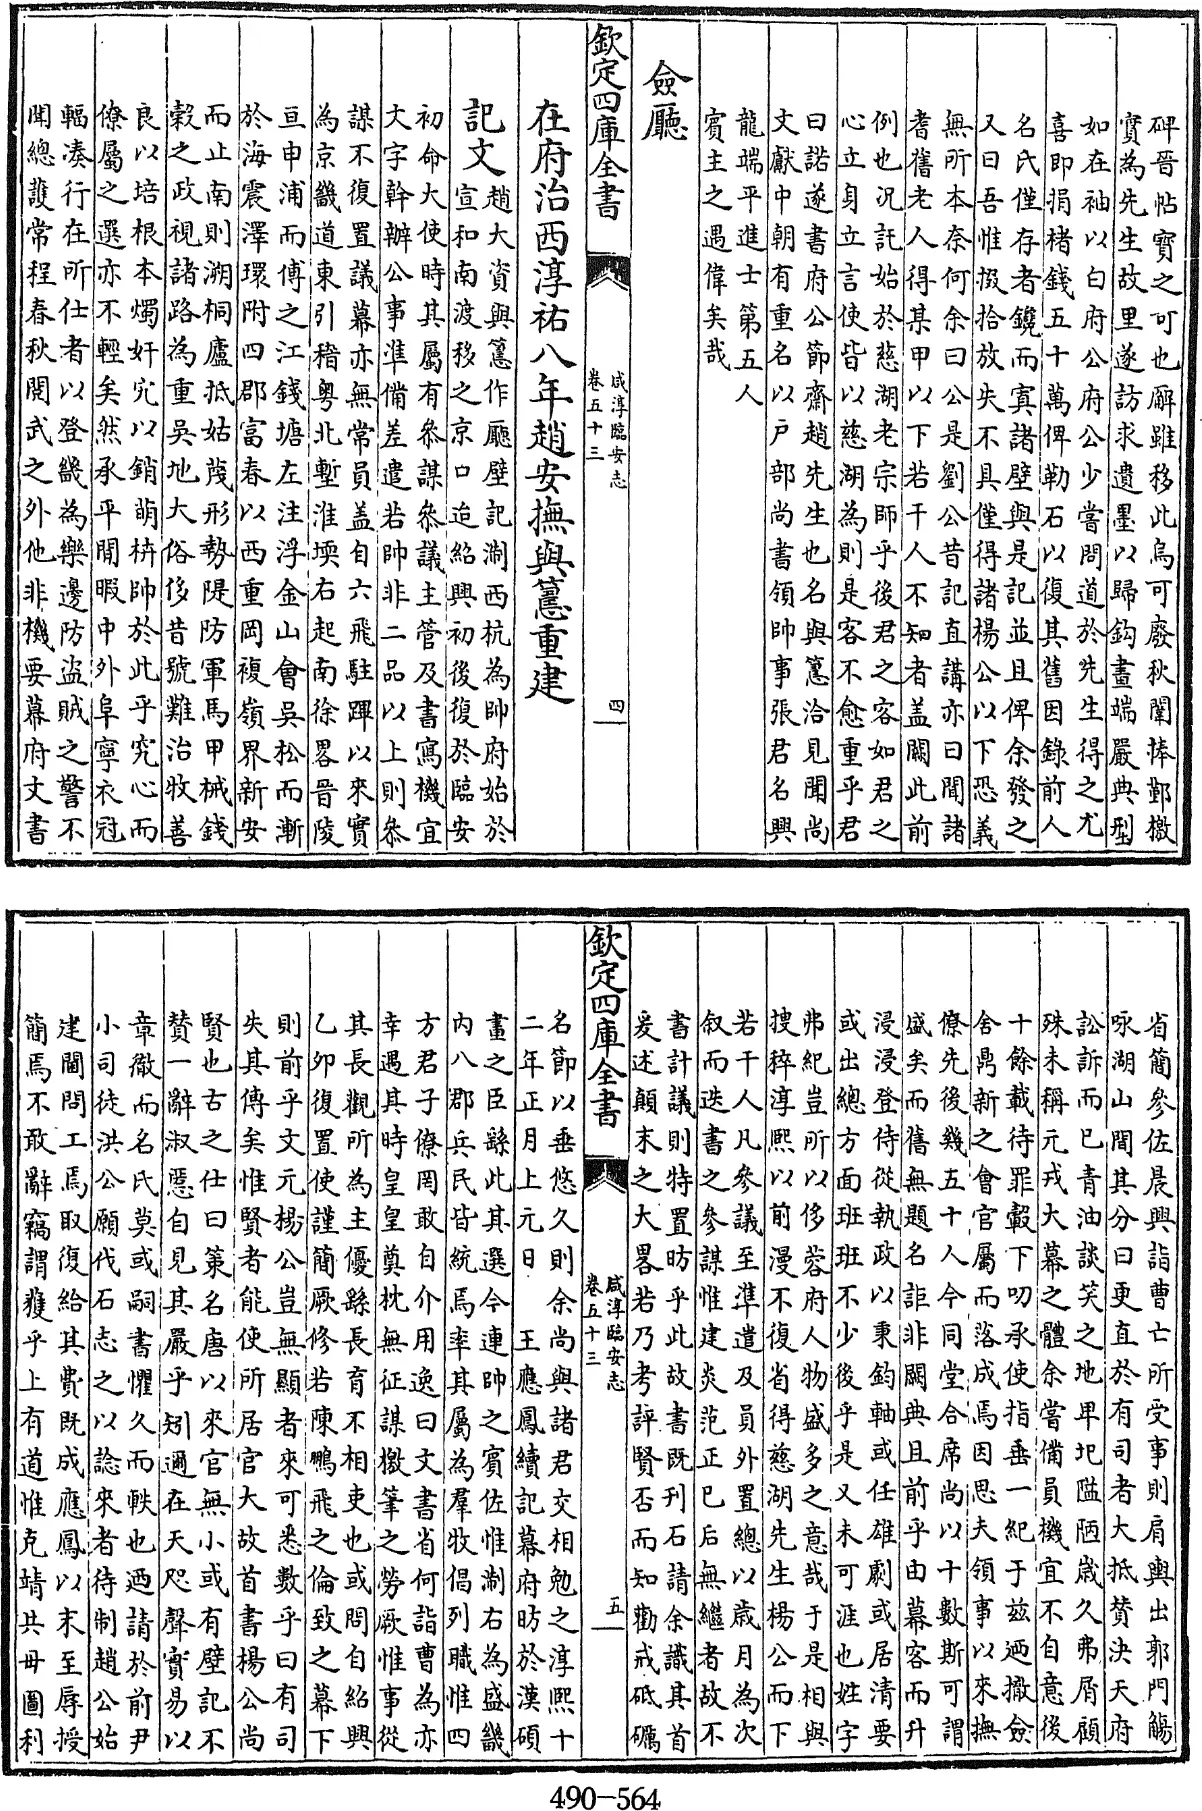 碑晉帖寳之可也廨雖移此烏可廢秋闈捧鄞檄
實為先生故里遂訪求遺墨以歸鈎畫端嚴典型
如在袖以白府公府公少嘗問道於先生得之尤
喜即捐楮錢五十萬俾勒石以復其舊因錄前人
名氏僅存者鑱而寘諸壁與是記並且俾余發之
又曰吾惟掇拾放失不具僅得諸楊公以下恐義
無所本奈何余曰公是劉公昔記直講亦曰聞諸
耆舊老人得某甲以下若干人不知者盖闕此前
例也況託始於慈湖老宗師乎後君之客如君之
心立身立言使皆以慈湖為則是客不愈重乎君
曰諾遂書府公節齋趙先生也名與𥲅洽見聞尚
文獻中朝有重名以戶部尚書領帥事張君名興
龍端平進士第五人
賓主之遇偉矣哉
僉廳
欽定四庫全書
咸淳臨安志
卷五十三
四
在府治西淳祐八年趙安撫與𥲅重建
記文
趙大資與𥲅作廳壁記淛西杭為帥府始於
宣和南渡移之京口迨紹興初後復於臨安
初命大使時其屬有參謀參議主管及書寫機宜
文字幹辦公事準備差遣若帥非二品以上則參
謀不復置議幕亦無常員盖自六飛駐蹕以來實
為京畿道東引稽粤北塹淮堧右起南徐畧晉陵
亘申浦而傅之江錢塘左注浮金山會吳松而漸
於海震澤環附四郡富春以西重岡複嶺界新安
而止南則溯桐廬抵姑蔑形勢隄防軍馬甲械錢
糓之政視諸路為重吳地大俗侈昔號難治牧善
良以培根本燭奸宄以銷萌枿帥於此乎究心而
僚屬之選亦不輕矣然承平閒暇中外阜寧衣冠
輻凑行在所仕者以登畿為樂邊防盜賊之警不
聞總護常程春秋閱武之外他非機要幕府文書
省簡參佐晨興詣曹亡所受事則肩輿出郭門觴
咏湖山間其分曰更直於有司者大抵賛決天府
訟訴而已青油談笑之地卑圯隘陋歲久弗屑顧
殊未稱元戎大幕之體余嘗備員機宜不自意後
十餘載待罪轂下叨承使指垂一紀于兹廼撤僉
舍鼎新之會官屬而落成焉因思夫領事以來撫
僚先後幾五十人今同堂合席尚以十數斯可謂
盛矣而舊無題名詎非闕典且前乎由幕客而升
浸浸登侍從執政以秉鈞軸或任雄劇或居清要
或出總方面班班不少後乎是又未可涯也姓字
弗紀豈所以侈蓉府人物盛多之意哉于是相與
搜稡淳熙以前漫不復省得慈湖先生楊公而下
若干人凡參議至準遣及員外置總以歲月為次
叙而迭書之參謀惟建炎范正巳后無繼者故不
書計議則特置昉乎此故書既刊石請余識其首
爰述顛末之大畧若乃考評賢否而知勸戒砥礪
欽定四庫全書
咸淳臨安志
卷五十三
五
名節以垂悠久則余尚與諸君交相勉之淳熙十
二年正月上元日　王應鳳續記幕府昉於漢碩
畫之臣繇此其選今連帥之賓佐惟淛右為盛畿
内八郡兵民皆統焉率其屬為羣牧倡列職惟四
方君子僚罔敢自介用逸曰文書省何詣曹為亦
幸遇其時皇皇奠枕無征謀檄筆之勞厥惟事從
其長觀所為主優繇長育不相吏也或問自紹興
乙夘復置使謹簡厥修若陳鵬飛之倫致之幕下
則前乎文元楊公豈無顯者來可悉數乎曰有司
失其傳矣惟賢者能使所居官大故首書楊公尚
賢也古之仕曰策名唐以來官無小或有壁記不
賛一辭淑慝自見其嚴乎矧邇在天咫聲實易以
章徹而名氏莫或嗣書懼久而軼也廼請於前尹
小司徒洪公願伐石志之以諗來者待制趙公始
建閫問工焉取復給其費既成應鳳以末至辱授
簡焉不敢辭竊謂雅乎上有道惟克靖共毋圖利
490-564